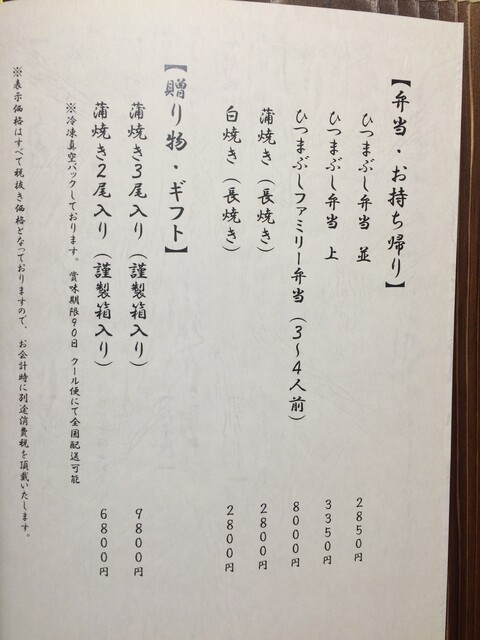 【弁当・お持ち帰り】
ひつまぶし弁当 並 2850円
ひつまぶし弁当 上 3350円
ひつまぶしファミリー弁当（3〜4人前） 8000円
蒲焼き（長焼き） 2800円
白焼き（長焼き） 2800円
【贈り物・ギフト】
蒲焼き3尾入り（謹製箱入り） 9800円
蒲焼き2尾入り（謹製箱入り） 6800円
※冷凍真空パックしております。 賞味期限90日 クール便にて全国配送可能
※表示価格はすべて税抜き価格となっておりますので、お会計時に別途消費税を頂戴いたします。